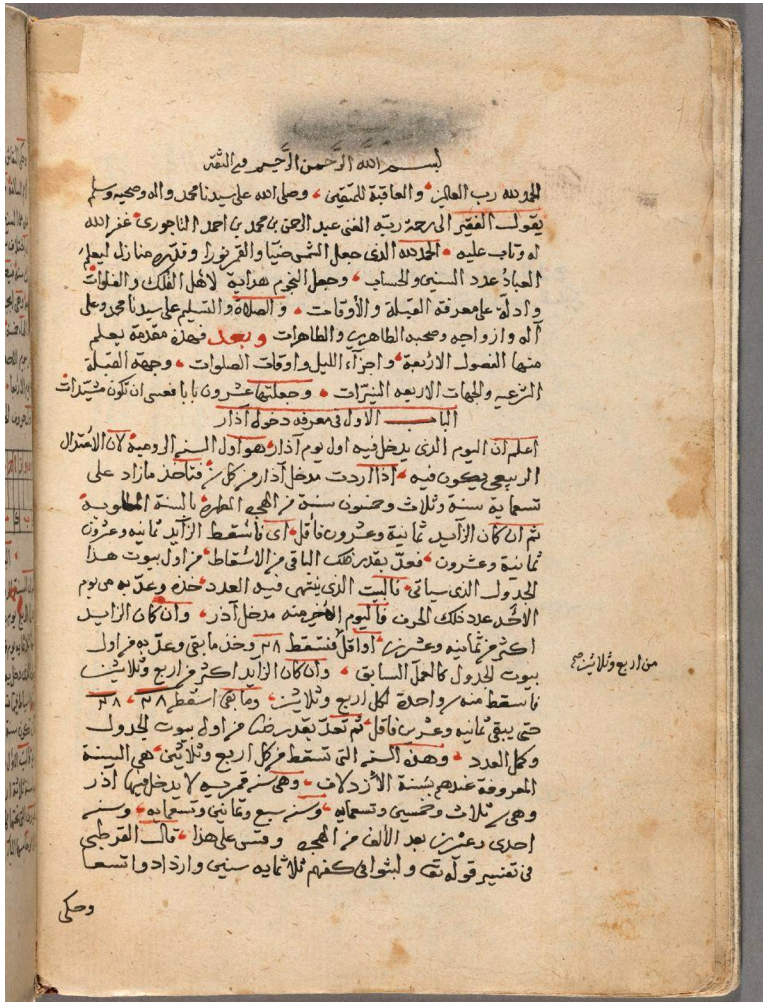 بسم الله الرحمن الرحيم وبه الثقة
الحمد لله رب العالمين والعاقبة للمتقين وصلى الله على سيدنا محمد واله وصحبه وسلم
يقول الفقير الى رحمة ربه الغنى عبد الرحمن بن محمد بن احمد التاجورى غفر الله
له وتاب عليه الحمد لله الذى جعل الشمس ضيا والقمر نورا وقدره منازل ليعلم
العباد عدد السنين والحساب وجعل النجوم هداية لاهل الفلك والفلوات
وادلة على معرفة القبلة والأوقات والصلاة والتسليم على سيدنا محمد وعلى
آله وازواجه وصحبه الطاهرين والطاهرات وبعد فهذه مقدمة يعلم
منها الفصول الاربعة واجزآء الليل واوقات الصلوات وجهة القبلة
الشرعيه والجهات الاربعه النيرات وجعلتها عشرون بابا فعسى ان تكون مشيدات
الباب الاول فى معرفه دخول آذار
اعلم ان اليوم الذى يدخل فيه اول يوم آذار هو اول السنه الروميه لان الاعتدال
الربيعى يكون فيه اذا اردت مدخل آذار من كل سنه فتاخذ مازاد على
تسعماية سنة وثلاث وخمسون سنة من الهجره بالسنة المطلوبة
ثم ان كان الزآيد ثمانية وعشرون فأقل اى فأسقط الزآيد ثمانيه وعشرون
ثمانية وعشرون فعد بقدر ذلك الباقى من الاسقاط من اول بيوت هذا
الجدول الذى سياتى فالبيت الذى ينتهى فيه العدد خذه وعد به من يوم
الأحد عدد ذلك الحرف فاليوم الاخر منه مدخل آذر وان كان الزايد
اكثر من ثمانيه وعشرين او اقل فتسقط ٢٨ وخذ مابقى وعد به من اول
بيوت الجدول كالعمل السابق وان كان الزآيد اكثر من اربع وثلاثين
من اربع وثلاثين صح
فاسقط منه واحدة لكل اربع وثلاثين ومابقى اسقط ٢٨ ٢٨
حتى يبقى ثمانيه وعشرين فاقل ثم تعد بقدر من اول بيوت الجدول
وكمل العدد وهذه السنه التى تسقط من كل اربع وثلاثين هى السنة
المعروفة عندهم بسنة الأزدلاف وهى سنه قمريه لا يدخل فيها آذر
وهى ثلاث وخمسين وتسعمايه وسنه سبع وثمانين وتسعمايه وسنه
احدى وعشرين بعد الألف من الهجره وقس على هذا قال القرطبى
فى تفسير قوله تع ولبثوا فى كهفهم ثلاثمايه سنين وازدادوا تسعا
وحكى